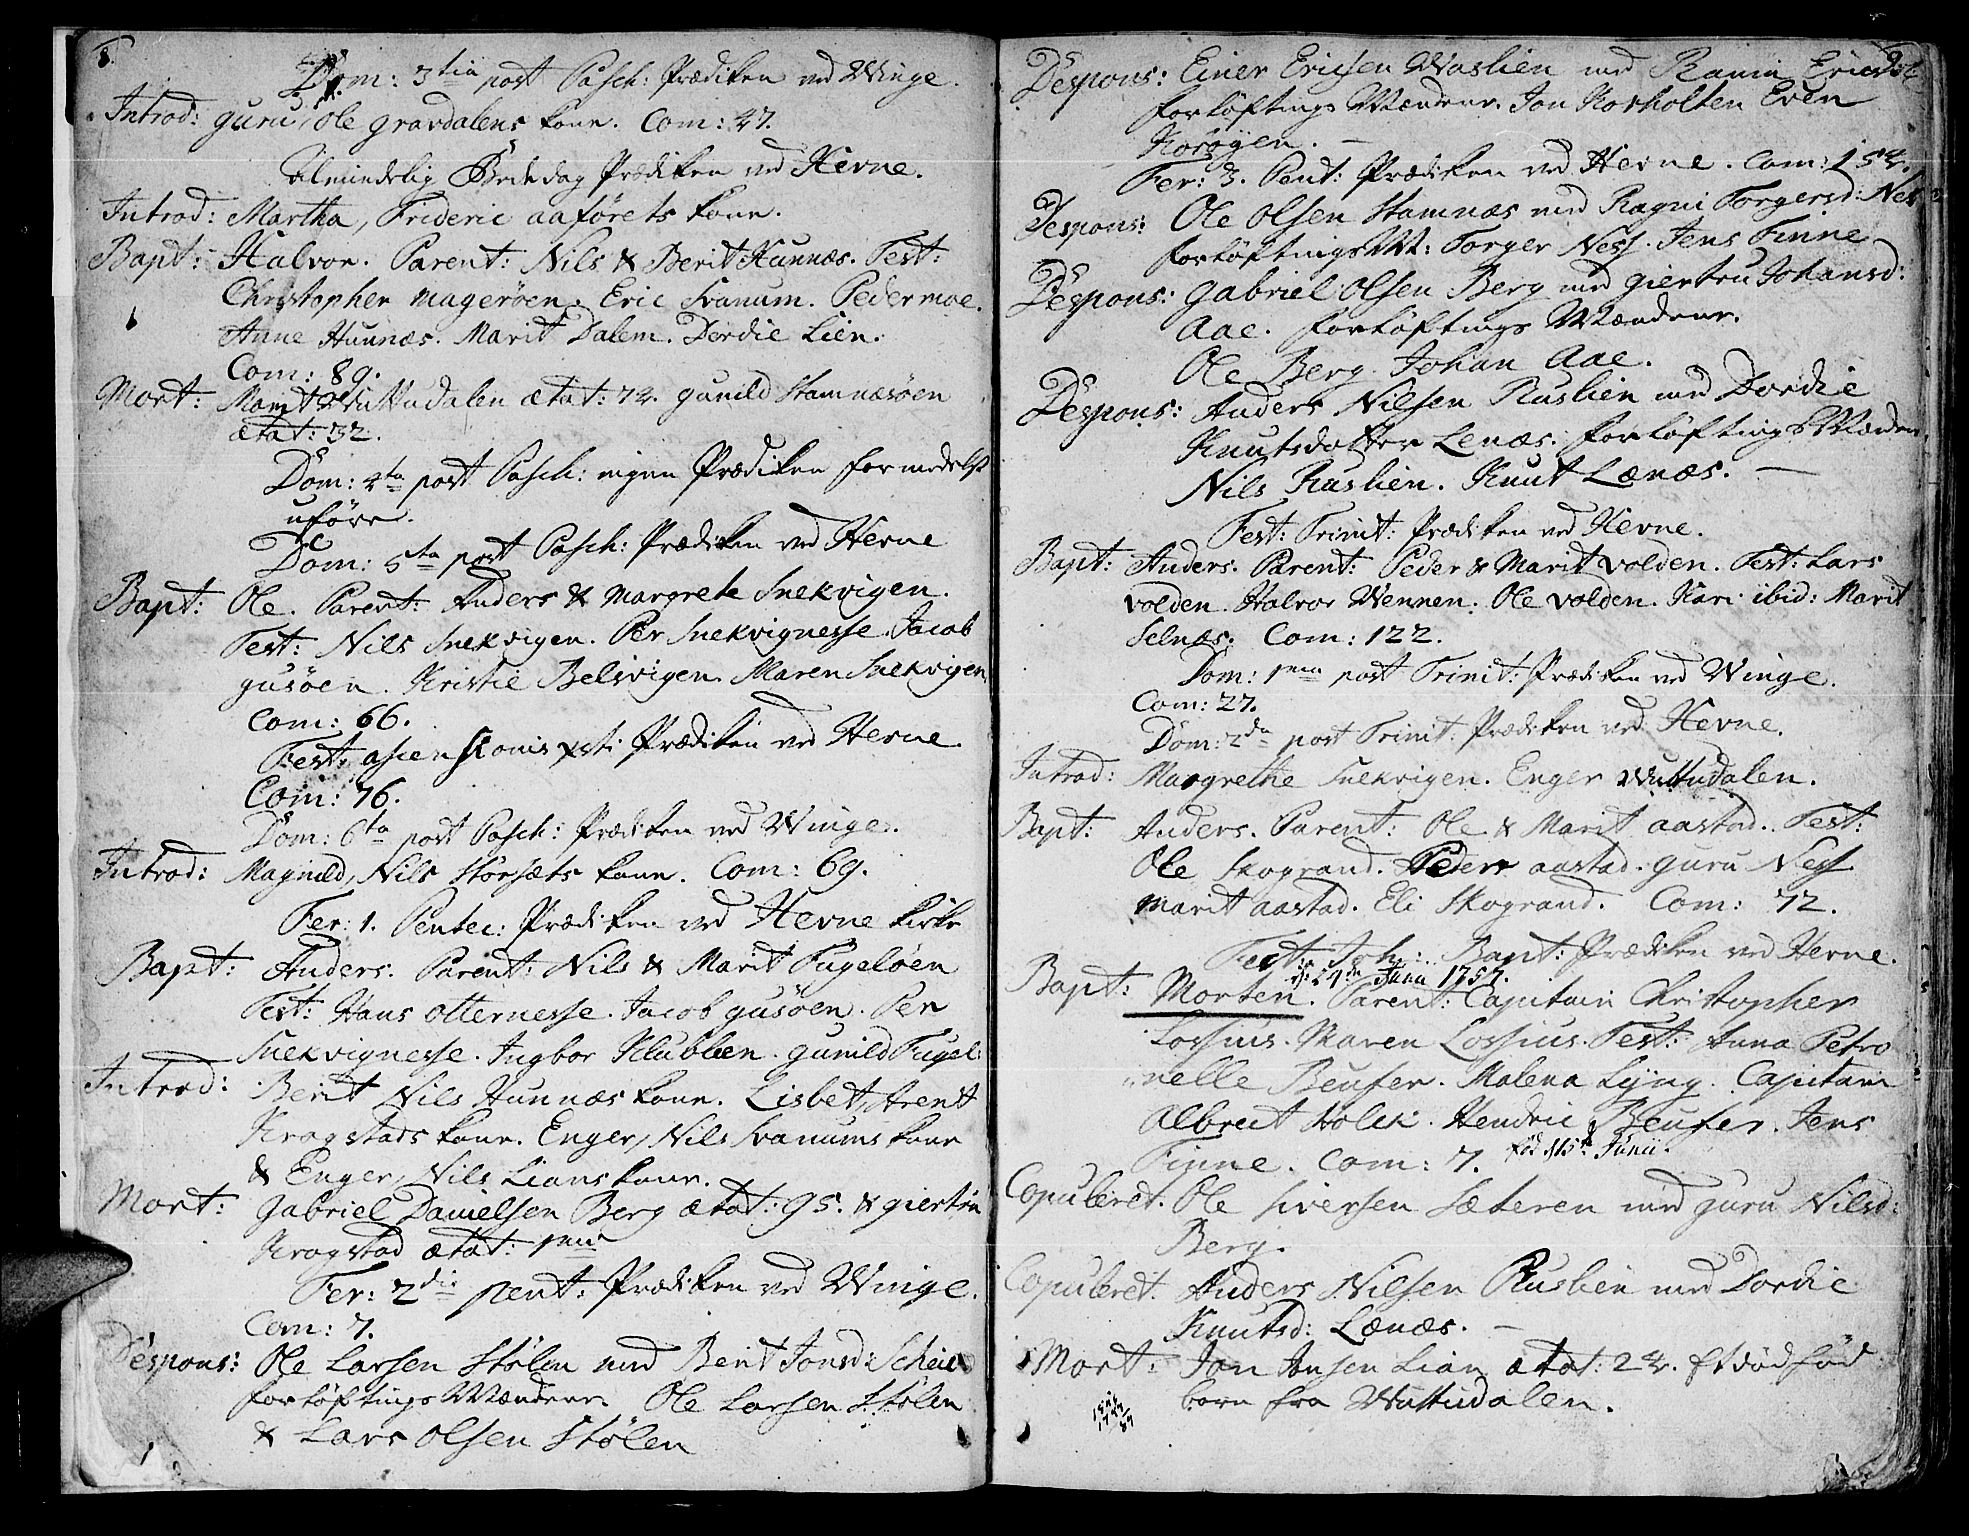 8.
Dom: 3tia post Pasch: Prædiken ved Winge.
Introd: guru, Ole gravdalens kone. Com: 47.
Almindelig Bededag Prædiken ved Hevne.
Introd: Martha, Frideric aaførets kone.
Bapt: Halvor. Parent: Nils & Berit Hunnæs. Test:
Christopher Magerøen. Eric Svanum. Peder moe.
Anne Hunnæs. Marit Dalem. Dordie Lien.
Com: 89.
Mort: Marit Wuttudalen ætat: 74. gunild Stamnæsøen
ætat: 32.
Dom: 4ta post Pasch: ingen Prædiken formedelst
uføre.
Dom: 5ta post Pasch: Prædiken ved Hevne
Bapt: Ole. Parent: Anders & Margrete Snekvigen.
Test: Nils Snekvigen. Per Snekvignesse. Jacob
gusøen. Kristie Belsvigen. Maren Snekvigen.
Com: 66.
Fest: asscensionis xsti Prædiken ved Hevne.
Com: 76.
Dom: 6ta post Pasch: Prædiken ved Winge.
Introd: Magnild, Nils Storsæts kone. Com: 69.
Fer: 1. Pentec: Prædiken ved Hevne kirke
Bapt: Anders. Parent: Nils & Marit Fugeløen
Test: Hans Otternesse. Jacob gusøen. Per
Snekvignesse. Ingbor Klubben. gunild Fugel:
Introd: Berit Nils Hunnæs kone. Lisbet, Arent
Krogstads kone. Enger, Nils Svanums kone
& Enger, Nils Lians kone.
Mort: Gabriel Danielsen Berg ætat: 95. & giertru
Krogstad ætat: 1mu
Fer: 2dia pent: Prædiken ved Winge.
Com: 7.
Despons: Ole Larsen Stølen med Berit Jonsd: Scheie
forløftings Mændene. Ole Larsen Stølen
& Lars Olsen Stølen
Despons: Einer Ericsen Waslien med Ranni Ericsd:
forløftings Mændene. Jon Kovholten Even
Korøyen.
Fer: 3. Pent: Prædiken ved Hevne. Com: 154.
Despons: Ole Olsen Stamnæs med Ragni Torgersd: Ness
forløftings M: Torger Ness. Jens Finne
Despons: Gabriel Olsen Berg med giertru Johansd:
Aae. forløftings Mændene.
Ole Berg. Johan Aae.
Despons: Anders Nilsen Ruslien med Dordie
Knutsdotter Lenæs. forløftings Mænden.
Nils Ruslien. Knut Lænæs.
Fest: Trinit: Prædiken ved Hevne.
Bapt: Anders. Parent: Peder & Marit volden. Test: Lars
volden. Halvor Wennen. Ole volden. Kari ibid: Marit
Selnæs. Com: 122.
Dom: 1ma post Trinit: Prædiken ved Winge.
Com: 27.
Dom: 2da post Trinit: Prædiken ved Hevne.
Introd: Margrethe Snekvigen. Enger Wuttudalen.
Bapt: Anders. Parent: Ole & Marit aastad. Test:
Ole Skogrand. Peder aastad. guru Ness
Marit aastad. Eli Skogrand. Com: 72.
Fest: Joh: Bapt: Prædiken ved Hevne.
d: 24de Junii 1757.
Bapt: Morten. Parent: Capitain Christopher
Lossius. Maren Lossius. Test: Anna Petro
nelle Beuser. Malena Lyng. Capitain
Albrect Holck. Hendric Beuser. Jens
Finne. Com: 7. fød d 15de Junii.
Copuleret: Ole Iversen Sæteren med guru Nilsd:
Berg.
Copuleret: Anders Nilsen Ruslien med Dordie
Knutsd: Lænæs.
Mort: Jon Jonsen Lian ætat: 24. Et dødfød
barn fra Wuttudalen.